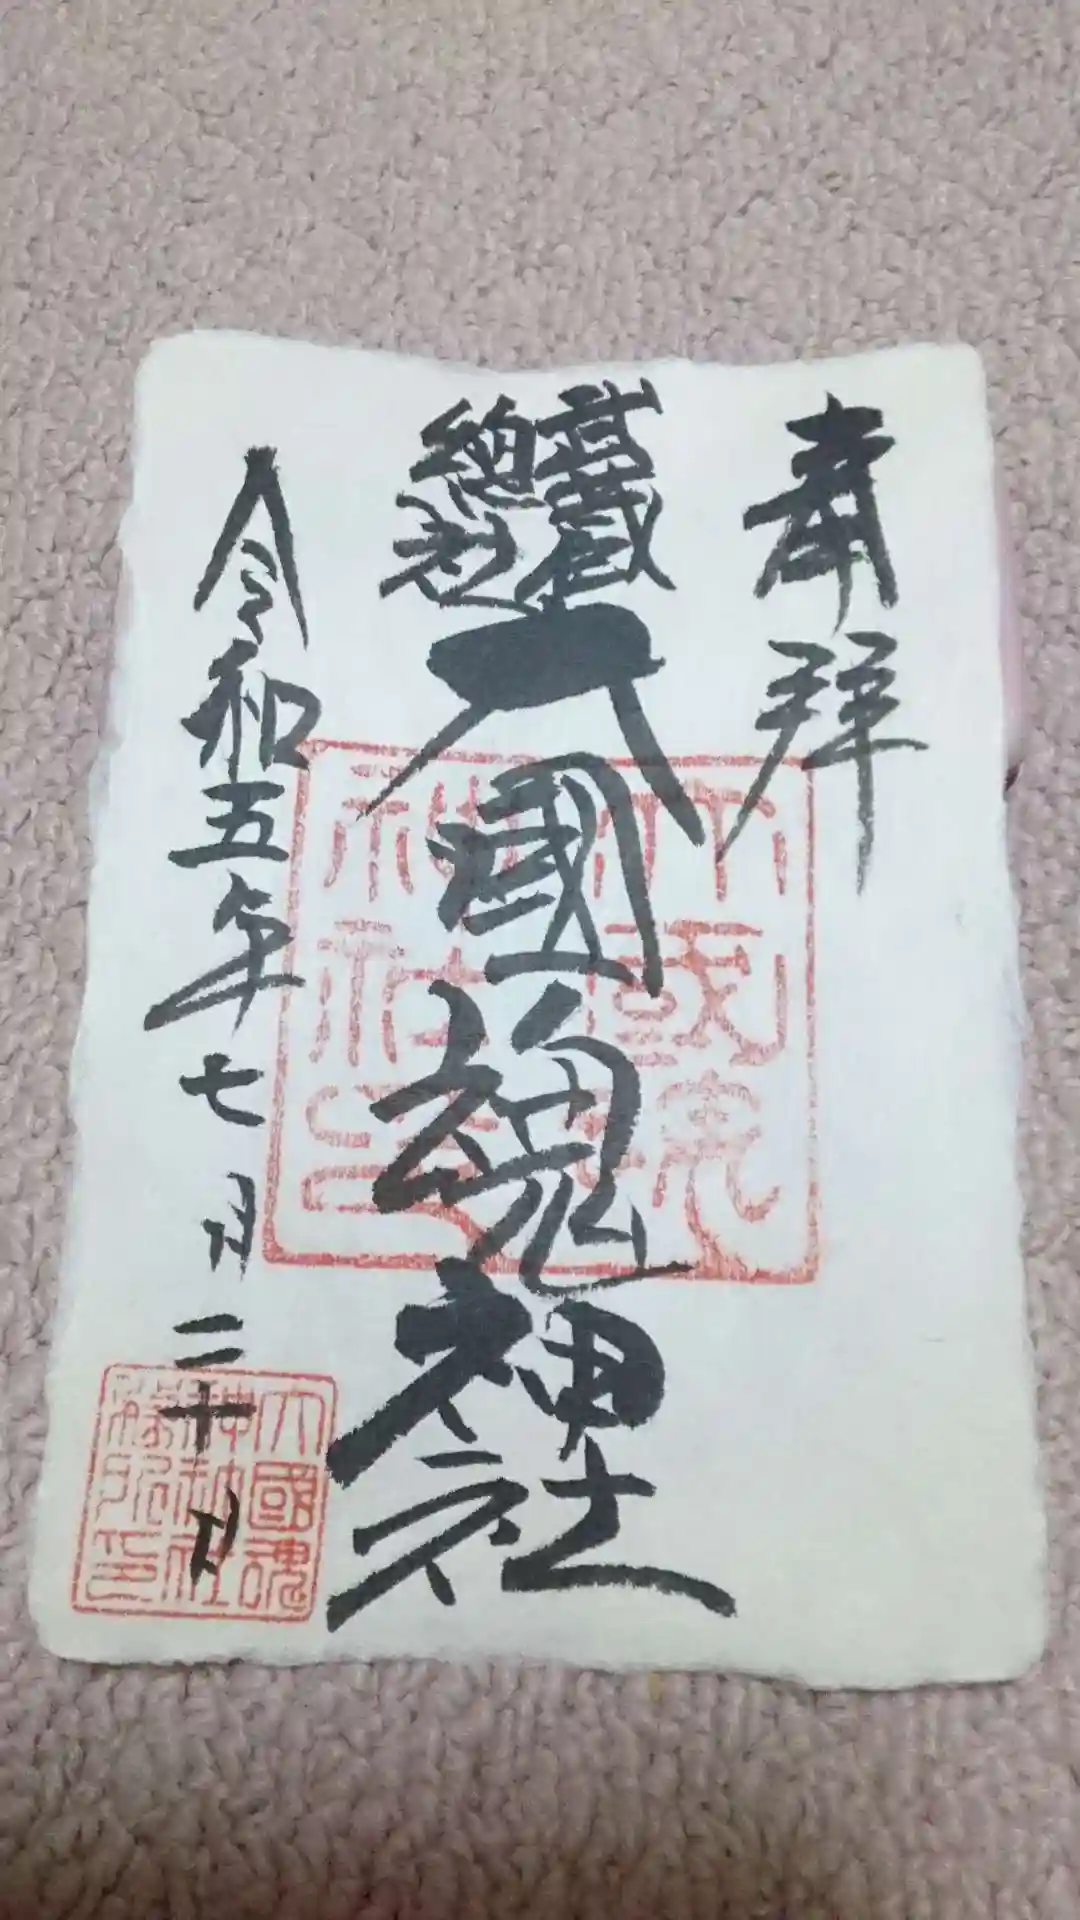 奉拝
武蔵
總社
大國魂神社
令和五年七月二十日
大國魂神社之印
大國魂
神社
印